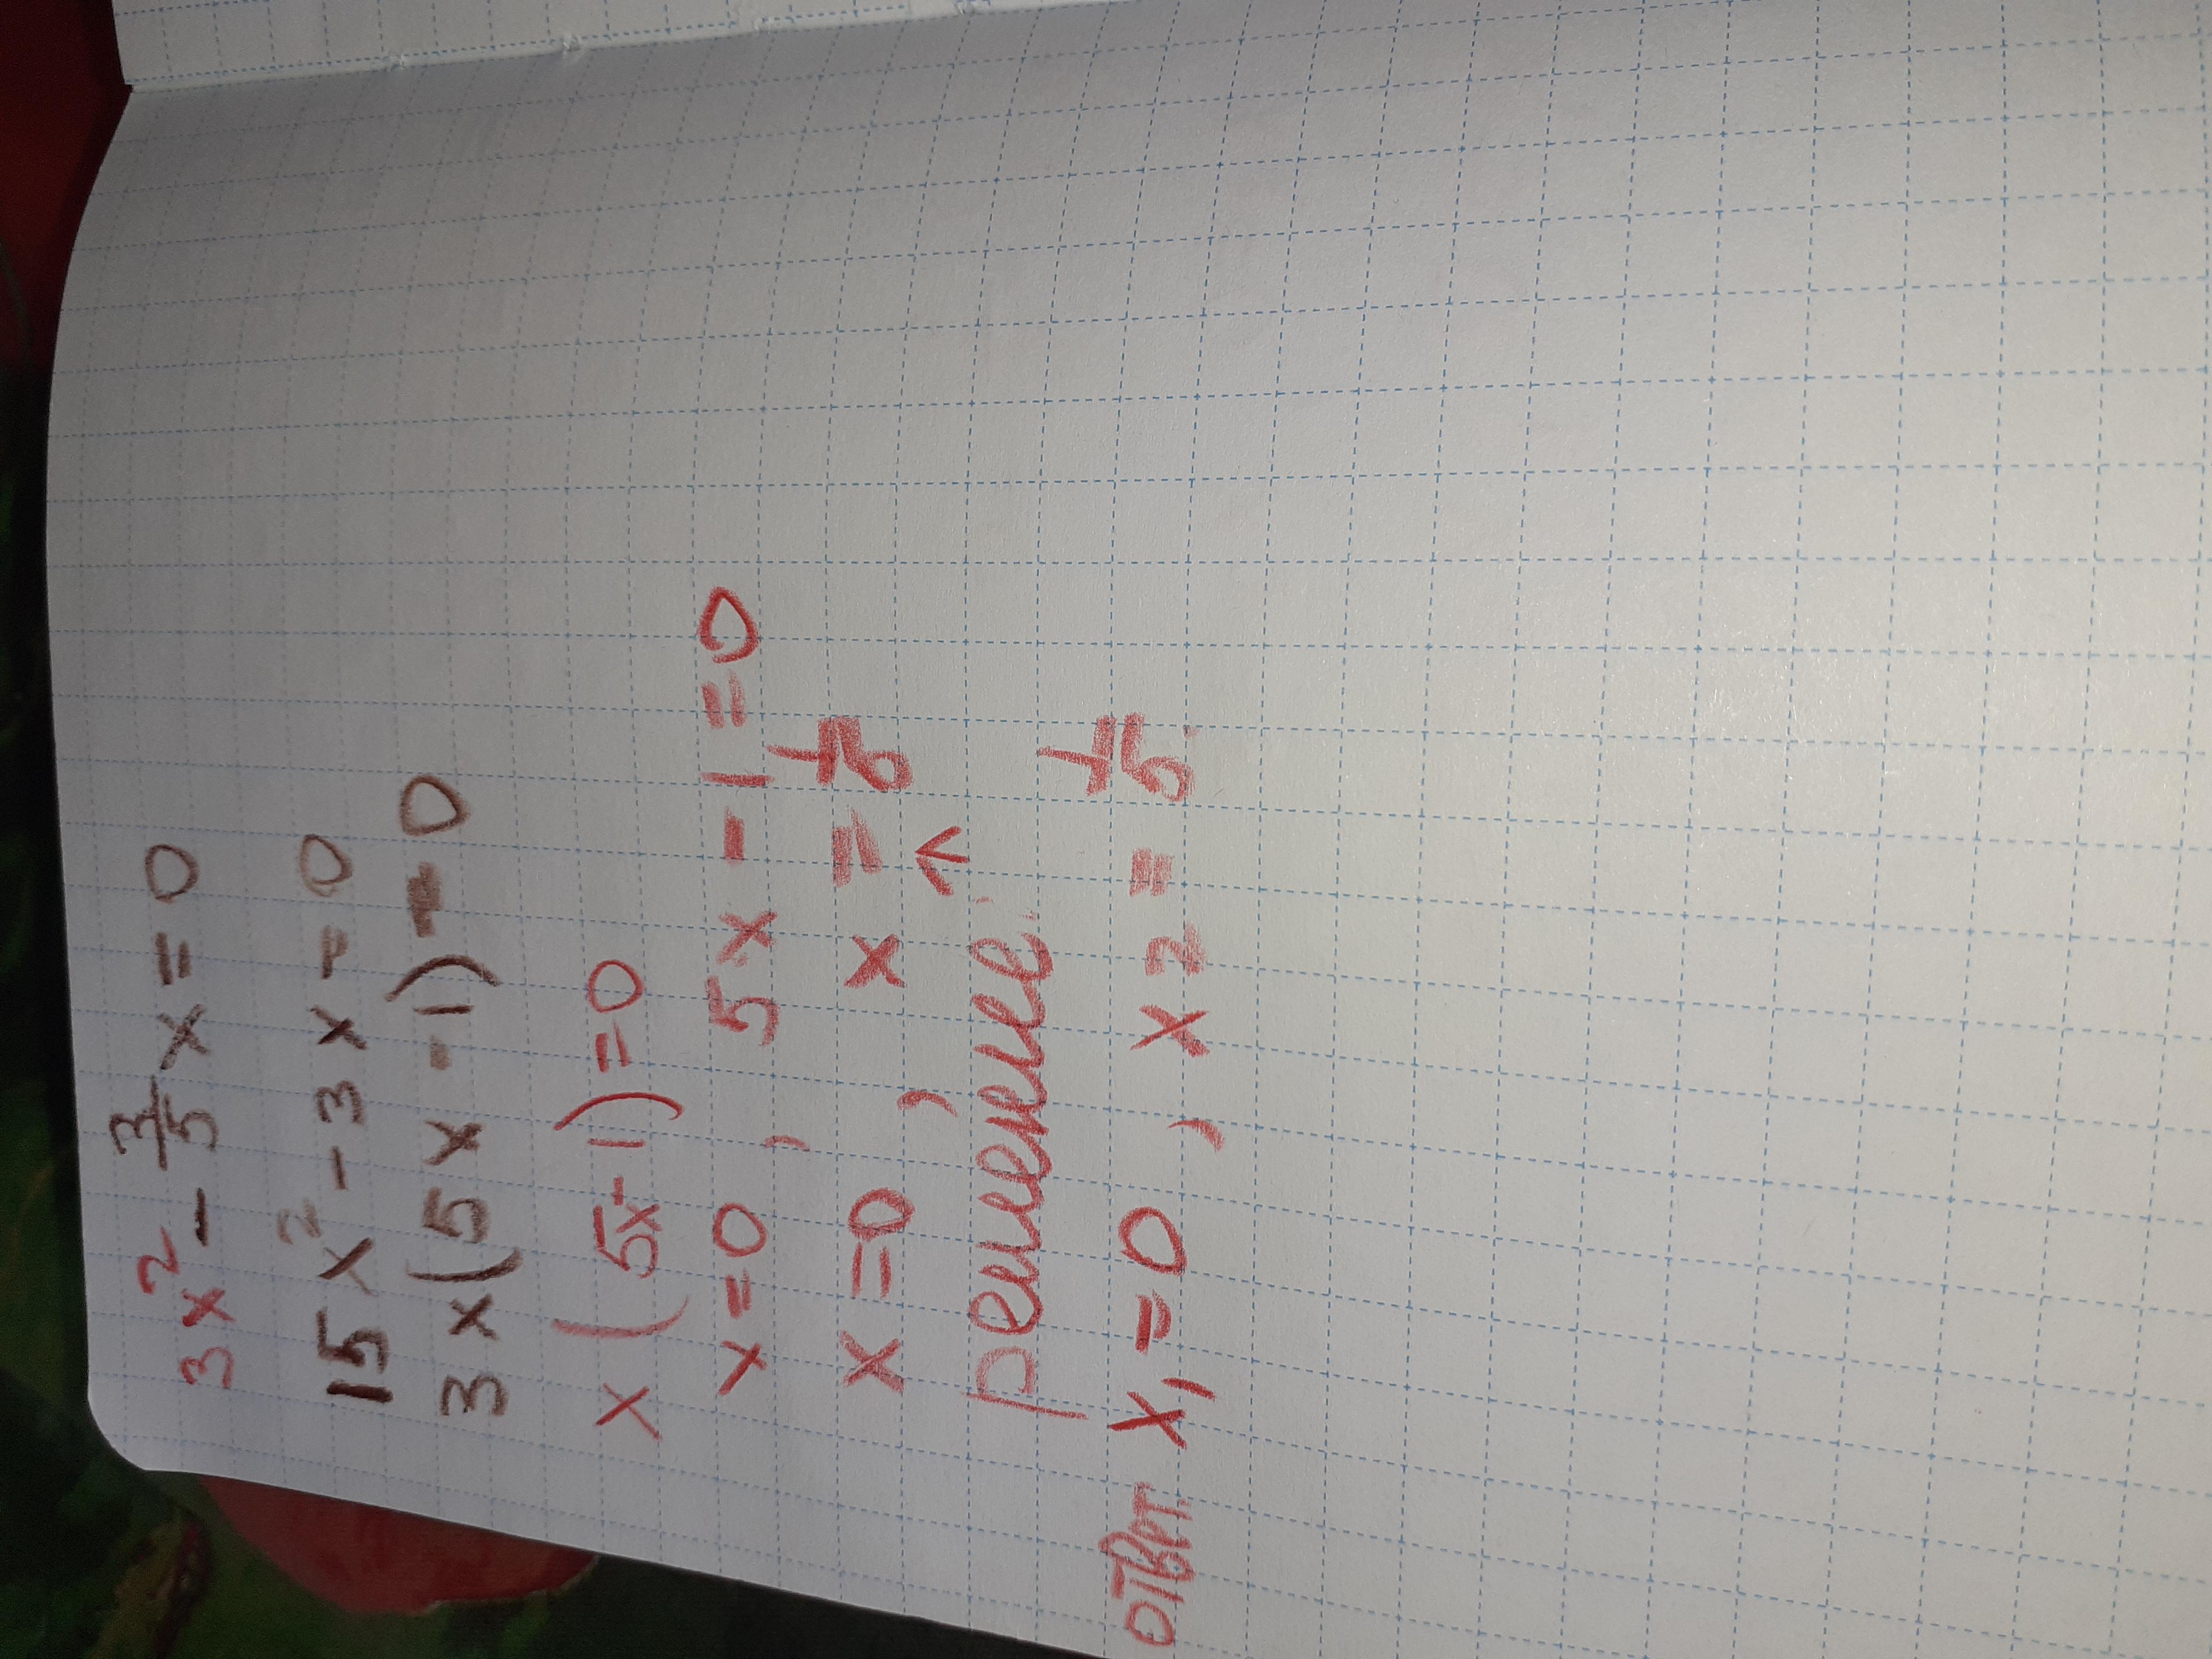 3x² - 3/5 x = 0
15x² - 3x = 0
3x(5x - 1) = 0
x(5x - 1) = 0
x = 0, 5x - 1 = 0
x = 0, x = 1/5
решение: ↑
ответ. x₁ = 0, x₂ = 1/5